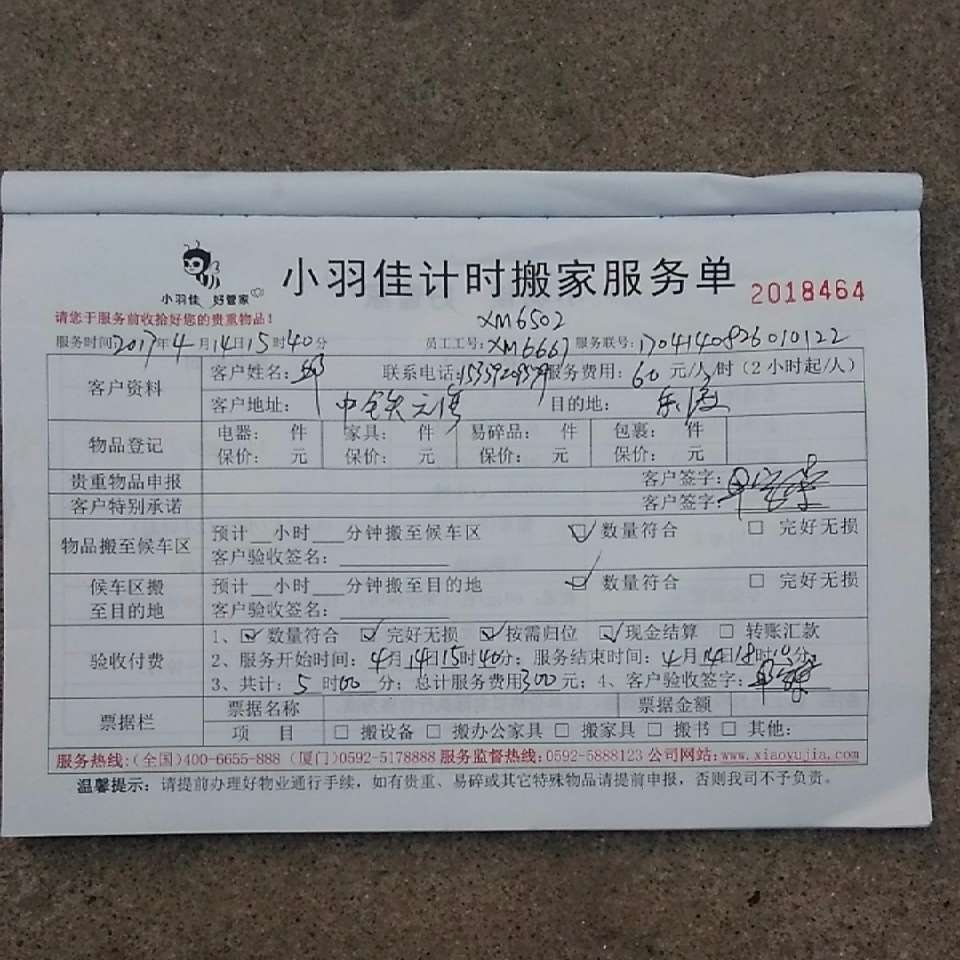 小羽佳 好管家
小羽佳计时搬家服务单 2018464
请您于服务前收拾好您的贵重物品！
XM6502
服务时间:2017年4月14日15时40分 员工工号:XM6667 服务联号:1704140826010122
客户资料 客户姓名: 联系电话: 服务费用: 60元/人/时(2小时起/人)
客户地址: 中铁元湾 目的地: 乐海
物品登记 电器: 件 家具: 件 易碎品: 件 包裹: 件
保价: 元 保价: 元 保价: 元 保价: 元
贵重物品申报 客户签字:
客户特别承诺 客户签字:
物品搬至候车区 预计__小时___分钟搬至候车区 ☑ 数量符合 □ 完好无损
客户验收签名:
候车区搬至目的地 预计__小时___分钟搬至目的地 ☑ 数量符合 □ 完好无损
客户验收签名:
验收付费 1、☑ 数量符合 ☑ 完好无损 ☑ 按需归位 ☑ 现金结算 □ 转账汇款
2、服务开始时间: 4月14日15时40分; 服务结束时间: 4月14日18时10分;
3、共计: 5时00分; 总计服务费用300元; 4、客户验收签字:
票据栏 票据名称 票据金额
项 目 □ 搬设备 □ 搬办公家具 □ 搬家具 □ 搬书 □ 其他:
服务热线:(全国)400-6655-888 (厦门)0592-5178888 服务监督热线:0592-5888123 公司网站:www.xiaoyujia.com
温馨提示: 请提前办理好物业通行手续，如有贵重、易碎或其它特殊物品请提前申报，否则我司不予负责。